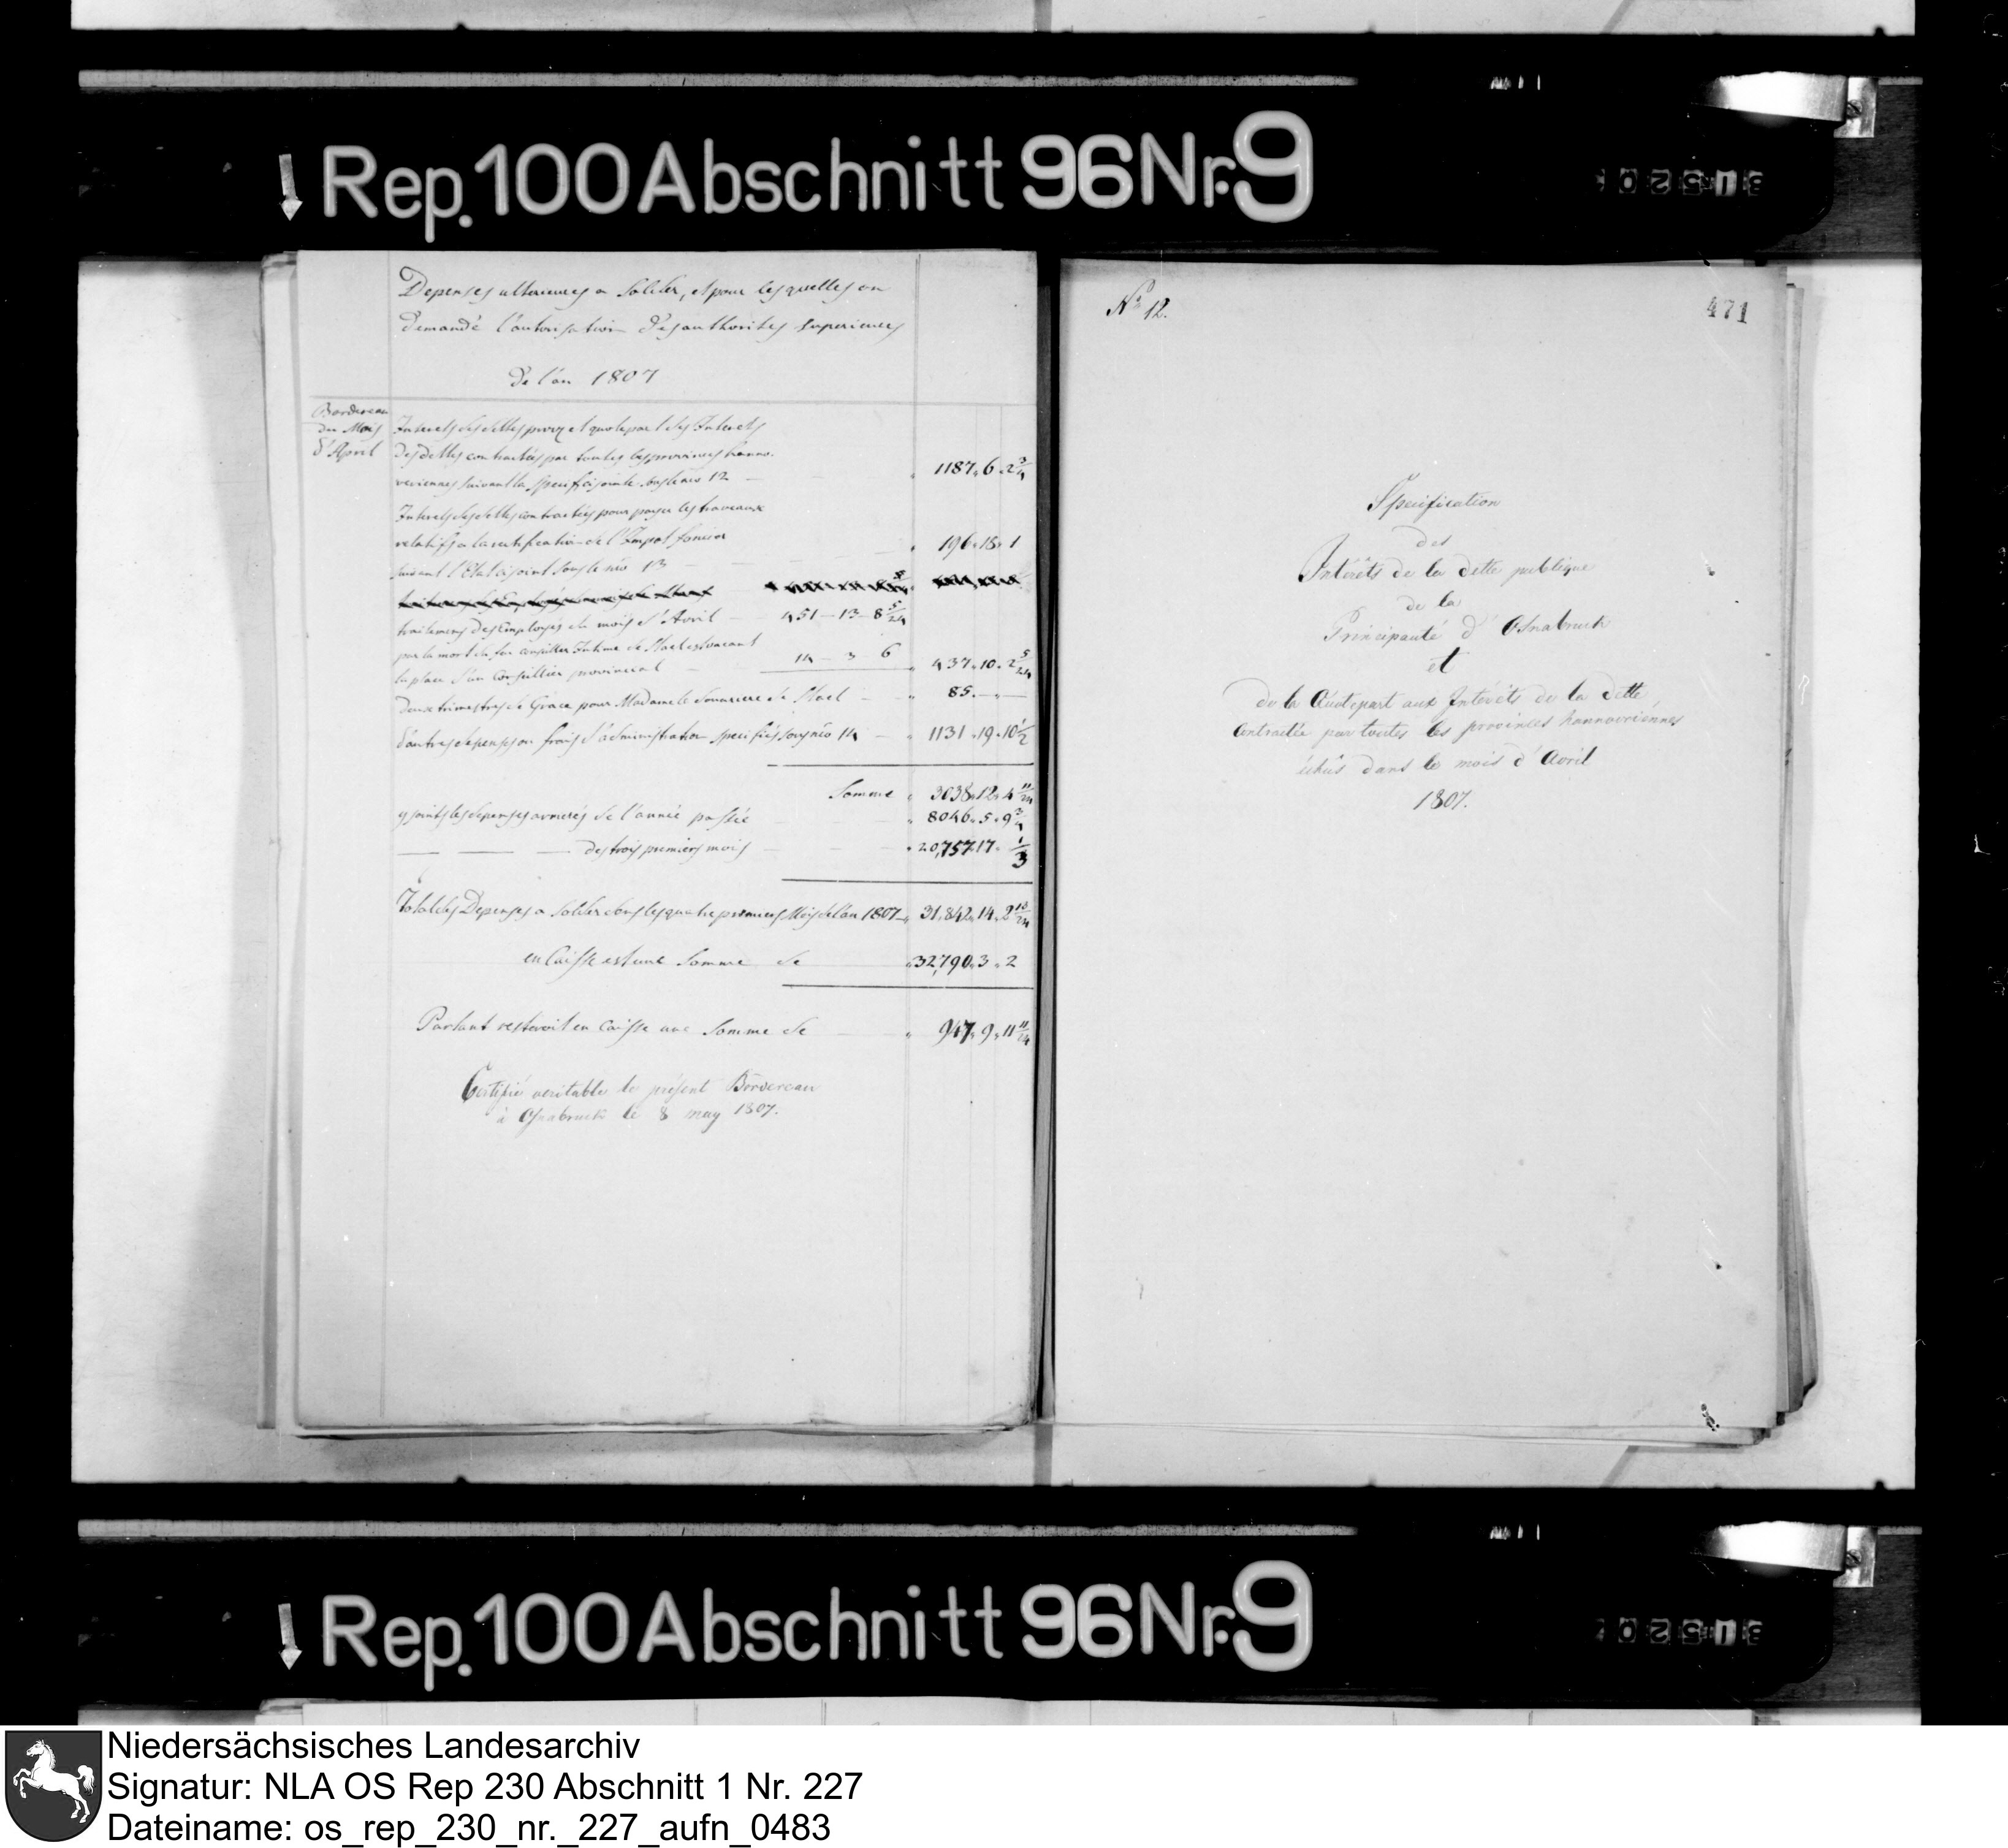 Rep. 100 Abschnitt 96 Nr. 9
Depenses ulterieures a solder, et pour lesquelles on
demande l'autorisation des authorités superieures
de l'an 1807
Bordereau
du Mois
d'April
Interets des dettes provς et quotepart des Interets
des dettes contractées par toutes les provinces hanno-
veriennes suivant la specif. cijointe sous le nro 12 — 1187 „ 6 „ 2 3/4
Interets des dettes contractées pour payer les traveaux
relatifs a la rectification de l'Impot foncier
suivant l'Etat cijoint sous le nro 13 — 196 „ 18 „ 1
traitemens des Employés du mois d'Avril — 451 — 13 — 8 5/24
par la mort du feu conseiller Intime de Stael est vacant
la place d'un Conseillier provincial — 14 — 3 6 „ 437 „ 10 „ 2 5/24
Deux trimestres de Grace pour Madame le Douariere de Stael — „ 85 „ — „ —
d'autres depenses ou frais d'administration specifiés sous nro 14 — „ 1131 „ 19 „ 10 1/2
Somme „ 3038 „ 12 „ 4 11/24
y joints les depenses arrierés de l'année passée „ 8046 „ 5 „ 9 3/4
— — — des trois premiers mois — „ 20,757 17 „ 1/3
Total des Depenses a solder dans les quatre premiers Mois de l'an 1807 „ 31,842 „ 14 „ 2 13/24
en Caisse est une Somme de „ 32,790 „ 3 „ 2
Partant resteroit en Caisse une Somme de „ 947 „ 9 „ 11 11/24
Certifié veritable le présent Bordereau
à Osnabruck le 8 may 1807.
No 12.
471
Specification
des
Intérêts de la dette publique
de la
Principauté d'Osnabruck
et
de la Quotepart aux Intérêts de la dette
contractée par toutes les provinces hannovriénnes
échûs dans le mois d'Avril
1807.
Rep. 100 Abschnitt 96 Nr. 9
Niedersächsisches Landesarchiv
Signatur: NLA OS Rep 230 Abschnitt 1 Nr. 227
Dateiname: os_rep_230_nr._227_aufn_0483